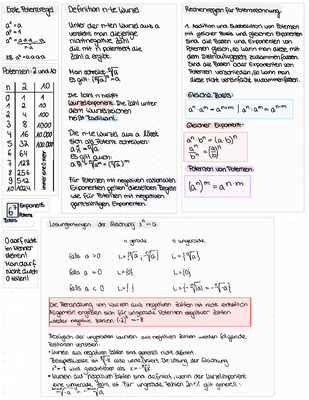 Erste Potenzregel
a⁰ = a
a⁰ = 1
a⁻ⁿ = a·a·a...a
:a
BB a³ = a·a·a
Potenzen: 2 und 10
n 2 10
0 1 1
1 2 10
2 4 100
3 8 1000
4 16 10.000
5 32 100.000
6 64
7 128
8 256
9 512
10 1024
Exponent
Potenz
Basis
Definition n-te Wurzel
Unter der n-ten Wurzel aus a
versteht man diejenige
nichtnegative Zahl,
die mit n potenziert die
Zahl a ergibt.
Man schreibt: ⁿ√a
Es gilt: (ⁿ√a)ⁿ = a
Die Zahl n heißt
Wurzelexponent. Die Zahl unter
dem Wurzelzeichen
heißt Radikand.
Die n-te Wurzel aus a lässt
sich als Potenz schreiben:
Es gilt auch:
Für Potenzen mit negativen rationalen
Exponenten gelten dieselben Regeln
wie für Potenzen mit negativen
ganzzahligen Exponenten.
Rechenregeln für Potenzrechnung
1. Addition und Subtraktion von Potenzen
mit gleicher Basis und gleichem Exponenten
Sind die Basen und Exponenten von
Potenzen gleich, so kann man diese mit
dem Distributivgesetz zusammenfassen.
Sind die Basen oder Exponenten von
Potenzen verschieden, so kann man
diese nicht vereinfacht zusammenfassen.
Gleiche Basis:
aⁿ · aᵐ = aⁿ⁺ᵐ | aⁿ : aᵐ = aⁿ⁻ᵐ
Gleicher Exponent:
aⁿ · bⁿ = (a·b)ⁿ
Potenzen von Potenzen:
(aⁿ)ᵐ = aⁿ·ᵐ
Lösungsmengen der Gleichung xⁿ = a
n gerade n ungerade
falls a > 0 L = {ⁿ√a ; -ⁿ√a} L = {ⁿ√a}
falls a = 0 L = {0} L = {0}
falls a < 0 L = { } L = {-ⁿ√|a| = -ⁿ√-a}
0 darf nicht
im Nenner
stehen!
Man darf
nicht durch
0 teilen!
Die Behandlung von Wurzeln aus negativen Zahlen ist nicht einheitlich.
Allgemein ergeben sich für ungerade Potenzen negativer Zahlen
wieder negative Zahlen: (-2)³ = -8
Bezüglich der ungeraden Wurzeln aus negativen Zahlen werden folgende
Positionen vertreten:
• Wurzeln aus negativen Zahlen sind generell nicht definiert.
Beispielsweise ist ³√-8 also undefiniert. Die Lösung der Gleichung
x³ = -8 wird geschrieben als x = -³√8.
• Wurzeln aus negativen Zahlen sind definiert, wenn der Wurzelexponent
eine ungerade Zahl ist. Für ungerade Zahlen 2n+1 gilt generell: